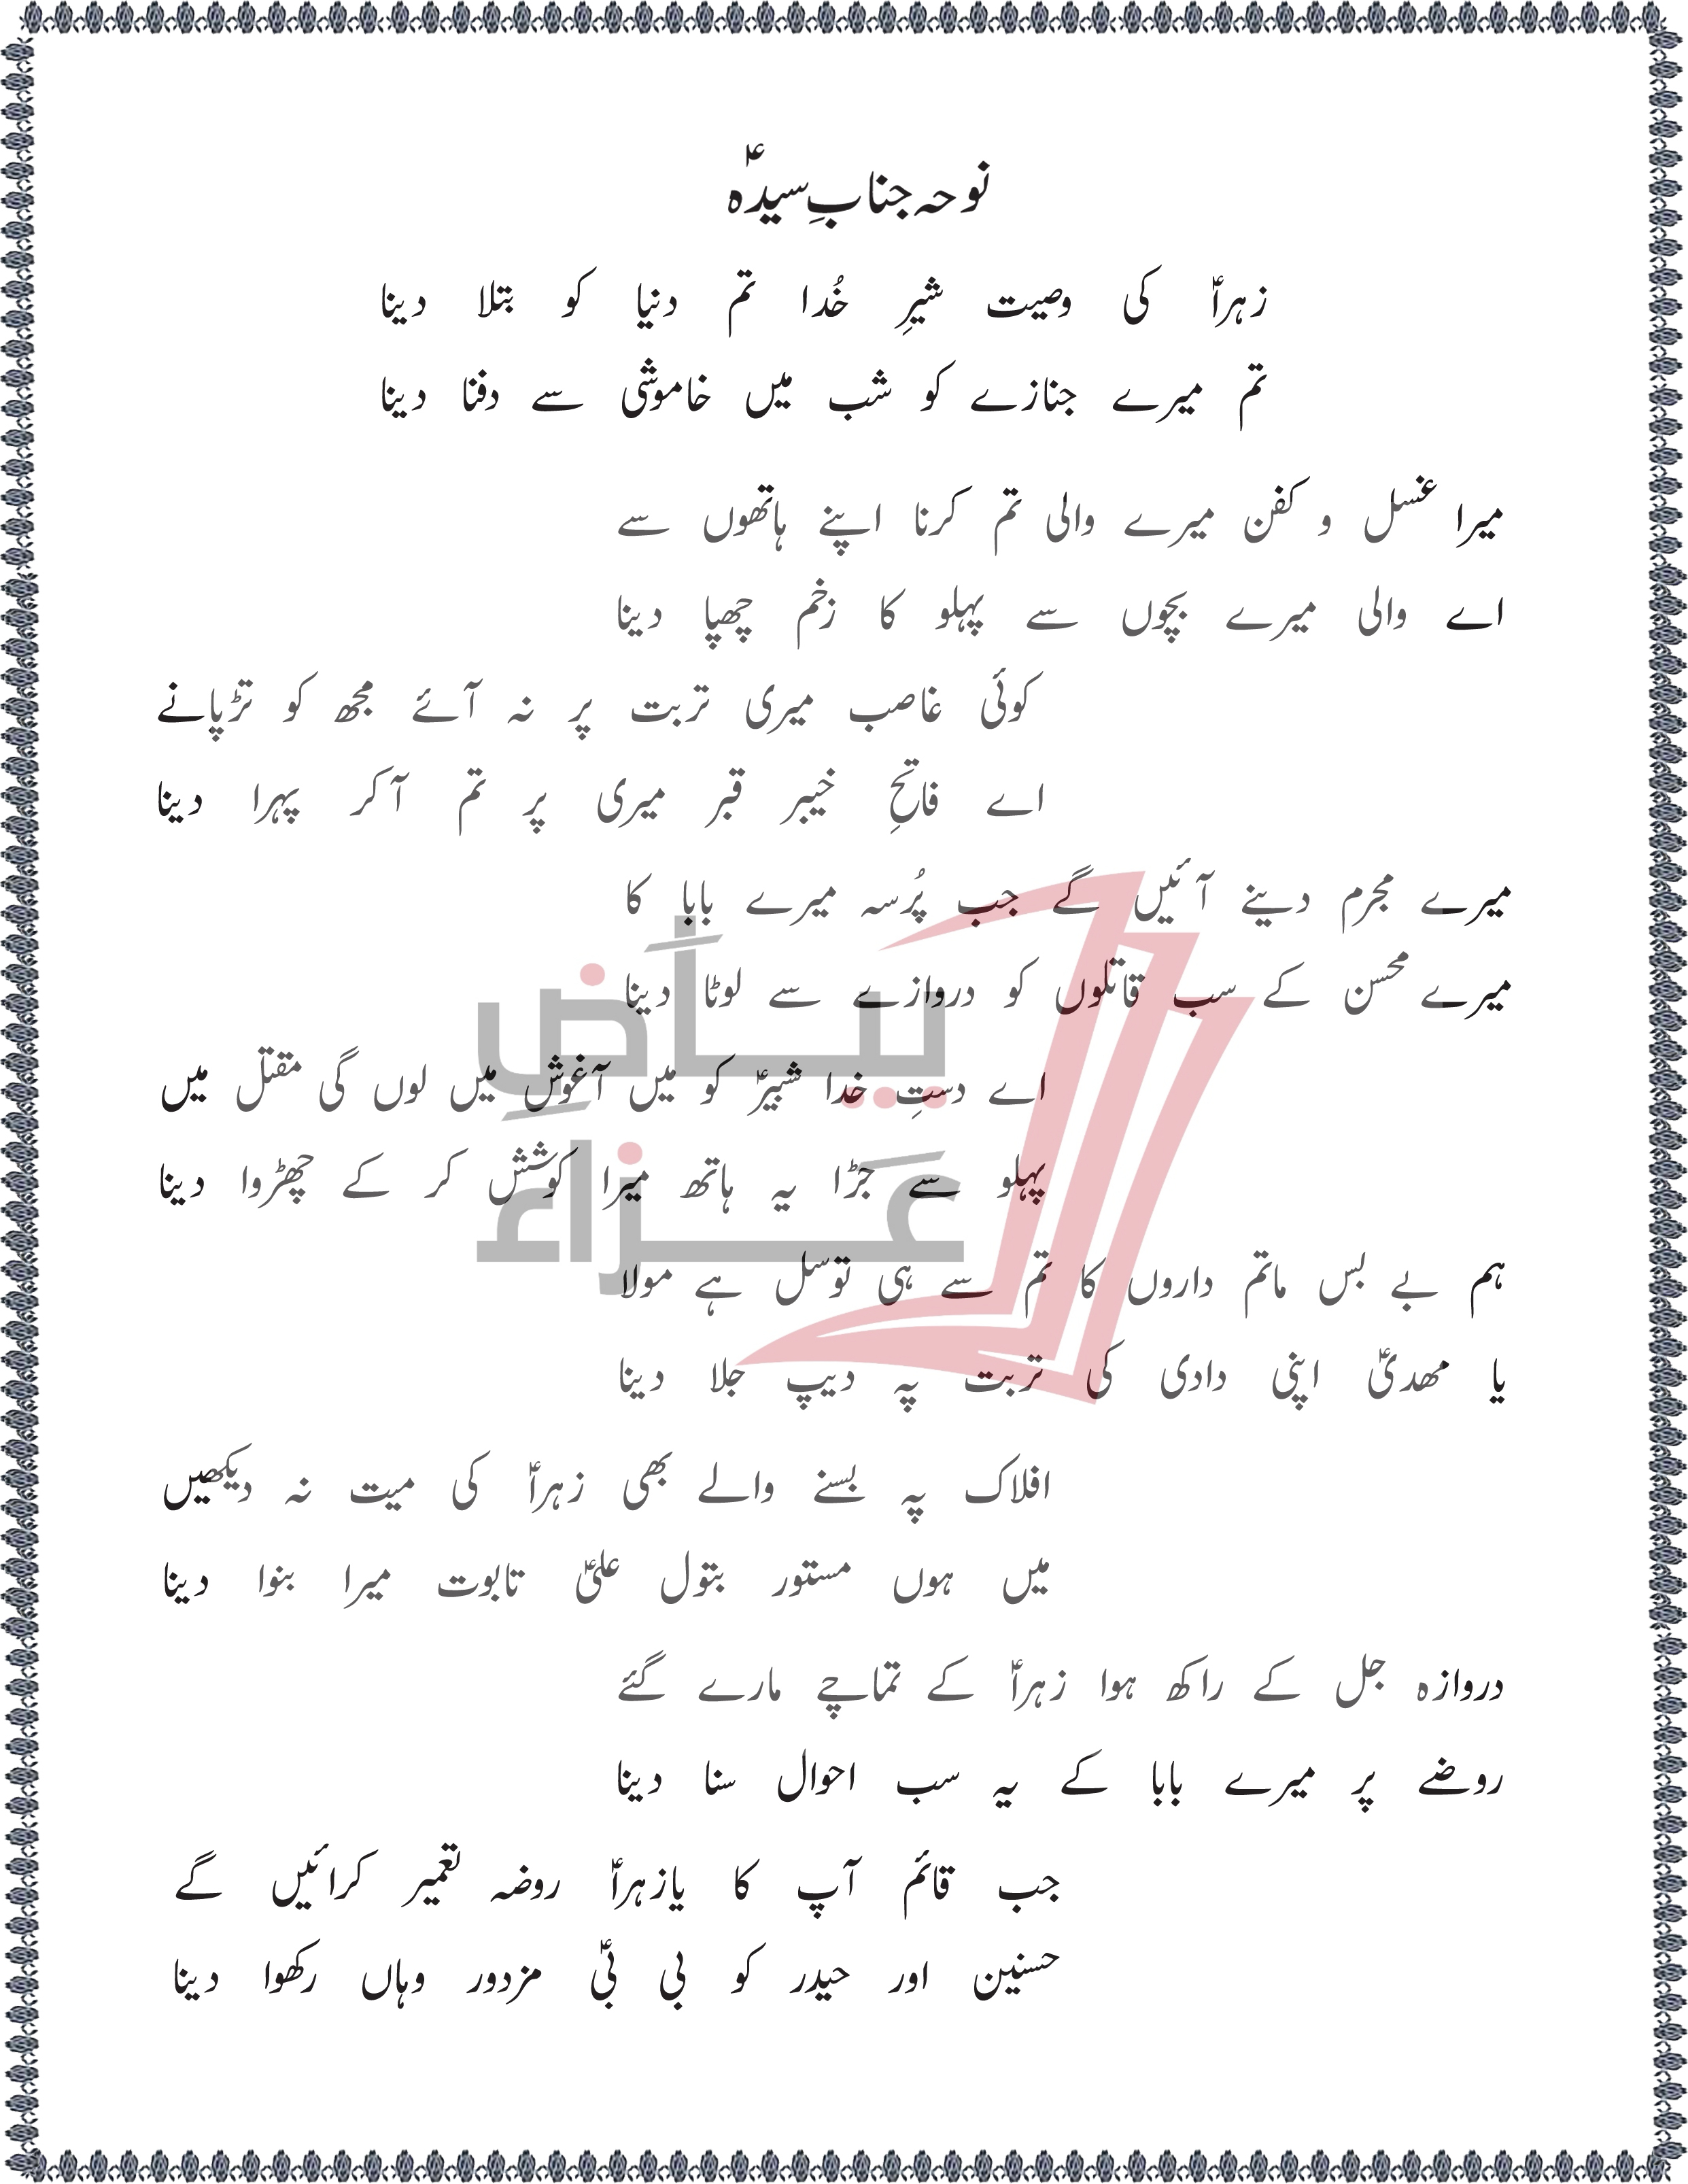 نوحہ جنابِ سیدہؑ
زہراؑ کی وصیت شیرِ خُدا تم دنیا کو بتلا دینا
تم میرے جنازے کو شب میں خاموشی سے دفنا دینا
میرا غسل و کفن میرے والی تم کرنا اپنے ہاتھوں سے
اے والی میرے بچوں سے پہلو کا زخم چھپا دینا
کوئی غاصب میری تربت پر نہ آئے مجھ کو تڑپانے
اے فاتحِ خیبر قبر میری پر تم آکر پہرا دینا
میرے مجرم دینے آئیں گے جب پُرسہ میرے بابا کا
میرے محسن کے سب قاتلوں کو دروازے سے لوٹا دینا
اے دستِ خدا شبیرؑ کو میں آغوش میں لوں گی مقتل میں
پہلو سے جڑا یہ ہاتھ میرا کوشش کر کے چھڑوا دینا
ہم بے بس ماتم داروں کا تم سے ہی توسل ہے مولا
یا مھدیؑ اپنی دادی کی تربت پہ دیپ جلا دینا
افلاک پہ بسنے والے بھی زہراؑ کی میت نہ دیکھیں
میں ہوں مستور بتول علیؑ تابوت میرا بنوا دینا
دروازہ جل کے راکھ ہوا زہراؑ کے تماچے مارے گئے
روضے پر میرے بابا کے یہ سب احوال سنا دینا
جب قائم آپ کا یازہراؑ روضہ تعمیر کرائیں گے
حسنین اور حیدر کو بی بیؑ مزدور وہاں رکھوا دینا
بیاضِ
عزاء